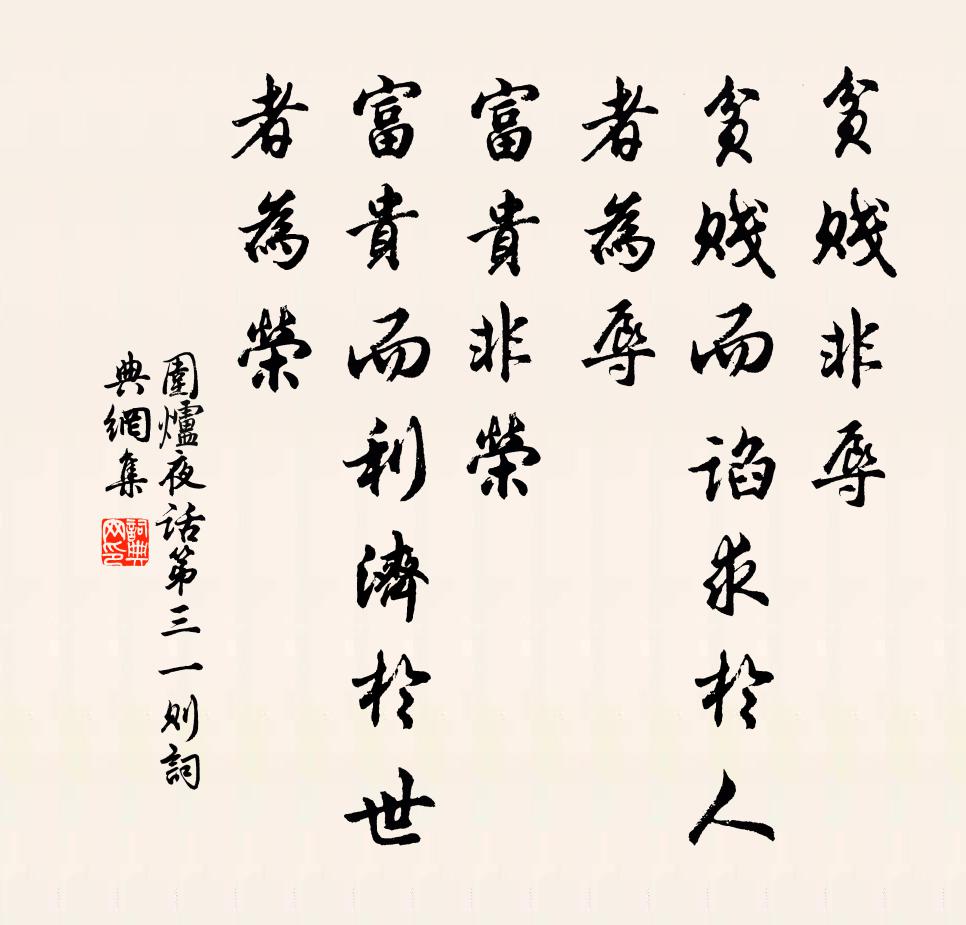 貧賤非辱
貧賤而諂求於人
者為辱
富貴非榮
富貴而利濟於世
者為榮
圍爐夜話第三一則詞
典網集
詞典
网印